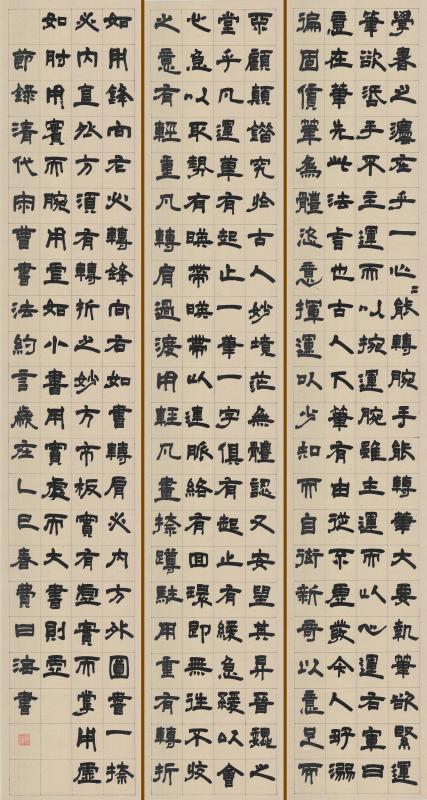 學書之灋在乎一心〻能轉腕手能轉筆大要執筆欲緊運
筆欲活手不主運而以捥運腕雖主運而以心運右軍曰
意在筆先此法言也古人下筆有由從不虛發今人好溺
徧固賃筆為體恣意揮運以少知而自衒新奇以意足而
不顧顛錯究於古人妙境茫無體認又安望其昇晉魏之
堂乎凡運筆有起止一筆一字俱有起止有緩急緩以會
心急以取勢有暎帶暎帶以連脈絡有回環即無往不收
之意有輕重凡轉肩過渡用輕凡畫捺蹲駐用重有轉折
如用鋒向左必轉鋒向右如書轉肩必內方外圓書一捺
必內直外方須有轉折之妙方不板實有虛實而掌用虛
如肘用實而腕用虛如小書用實處而大書則虛
節錄清代宋曹書法約言歲在乙巳春費日海書